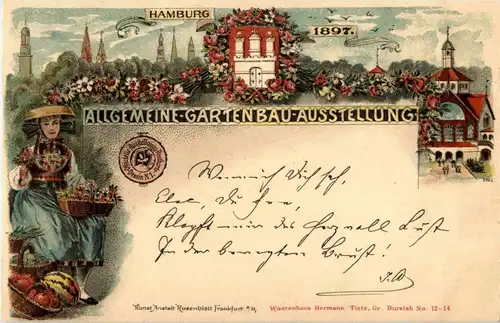 HAMBURG
1897.
ALLGEMEINE-GARTENBAU-AUSSTELLUNG.
Wenn ich Dich seh,
Du
Klopft mir das Lust
In der bewegten Brust!
Kunst Anstalt Rosenblatt Frankfurt a/M.
Waarenhaus Hermann Tietz, Gr. Burstah No. 12-14.